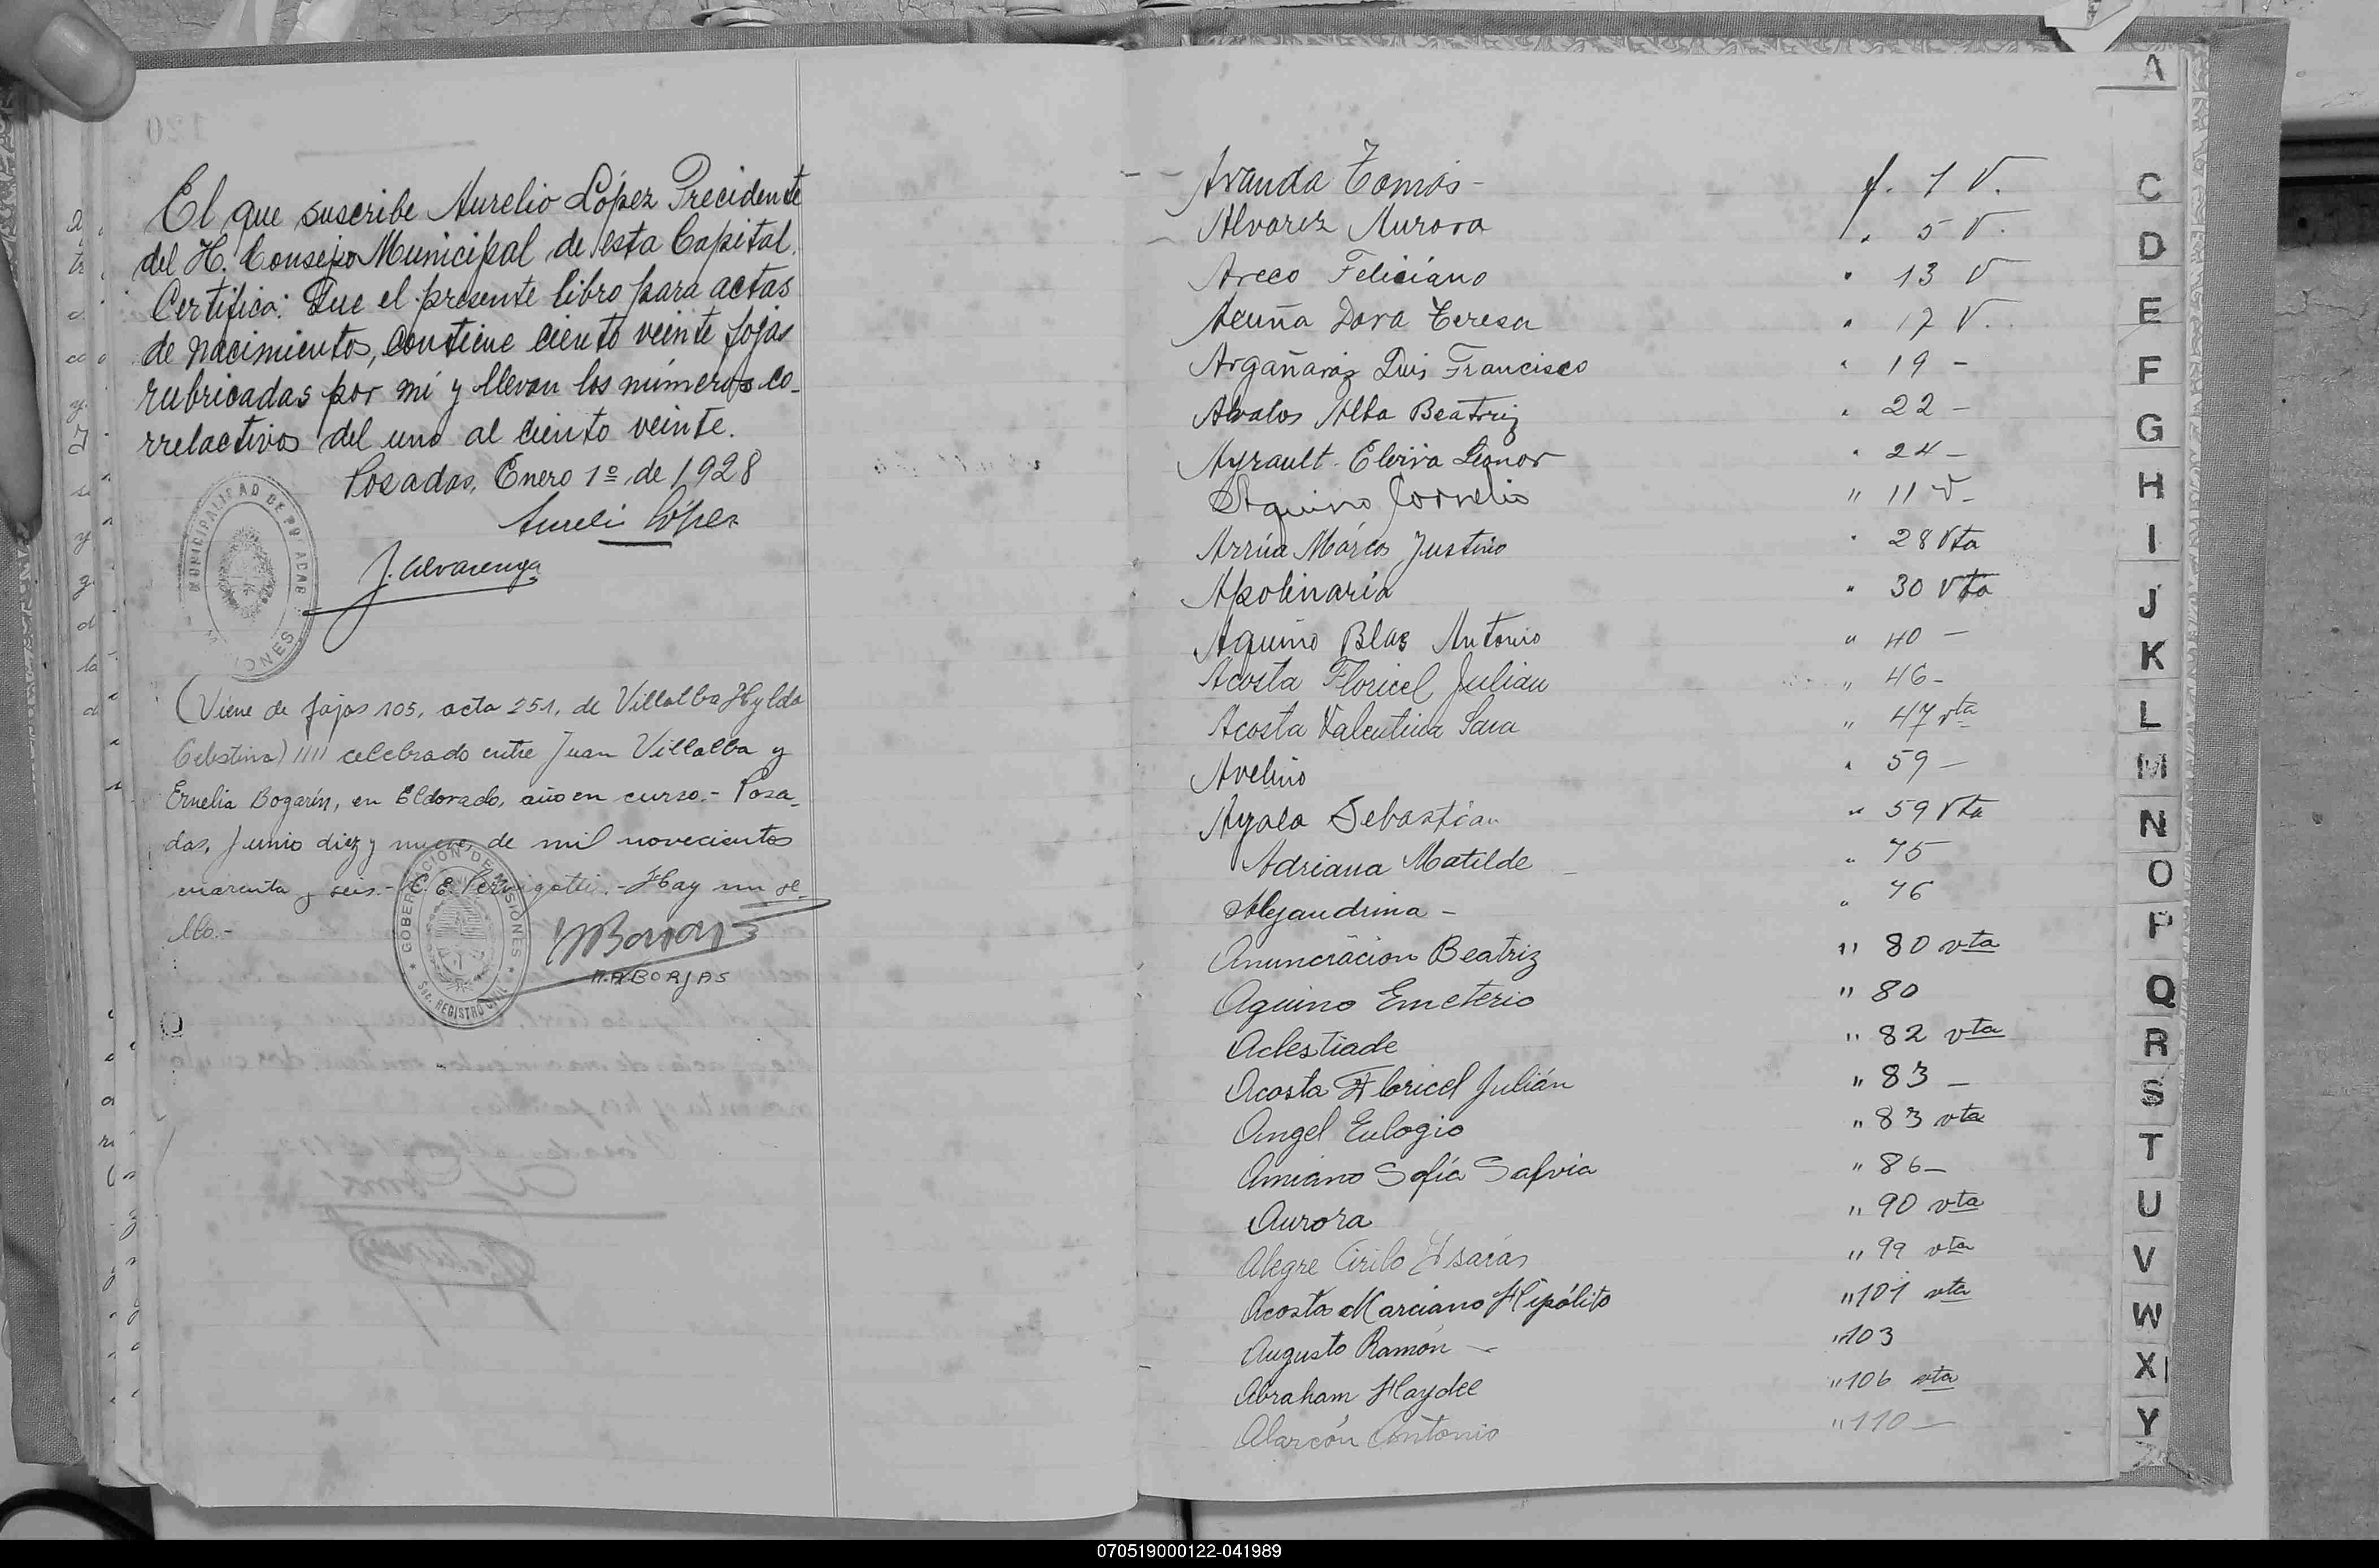 El que suscribe Aurelio López Precidente
del H. Consejo Municipal de esta Capital.
Certifica: Que el presente libro para actas
de Nacimientos, contiene ciento veinte fojas
rubricadas por mí y llevan los números co-
rrelactivos del uno al ciento veinte.
Posadas, Enero 1º de 1928
Aurelio López
J. Alvarenga
MUNICIPALIDAD DE POSADAS
MISIONES
(Viene de fojas 105, acta 251, de Villalba Hylda
Celestina) //// celebrado entre Juan Villalba y
Ernelia Bogarín, en Eldorado, año en curso.- Posa-
das, Junio diez y nueve de mil novecientos
cuarenta y seis.- C. E. Pervigotti.- Hay un se-
llo.-
GOBERNACION DE MISIONES
Sec. REGISTRO CIVIL
BORJAS
A
C
D
E
F
G
H
I
J
K
L
M
N
O
P
Q
R
S
T
U
V
W
X
Y
Z
Aranda Tomás - f. 1 V.
Alvarez Aurora " 5 V.
Areco Feliciano " 13 V
Acuña Dora Teresa " 17 V.
Argañaráz Luis Francisco " 19 -
Abalos Alba Beatriz " 22 -
Ayrault Elvira Leonor " 24 -
Aquino Cornelio " 11 V-
Arrúa Márcos Justino " 28 Vta
Apolinaria " 30 Vta
Aquino Blas Antonio " 40 -
Acosta Floricel Julian " 46 -
Acosta Valentina Sara " 47 vta
Avelino " 59 -
Ayala Sebastian " 59 Vta
Adriana Matilde " 75
Alejandrina - " 76
Anunciacion Beatriz " 80 vta
Aquino Emeterio " 80
Aclestiade " 82 vta
Acosta Floricel Julián " 83 -
Angel Eulogio " 83 vta
Amiano Sofía Safvia " 86 -
Aurora " 90 vta
Alegre Cirilo Isaías " 99 vta
Acosta Marciano Hipólito " 101 vta
Augusto Ramón - " 103
Abraham Haydee " 106 vta
Alarcón Antonio " 110 -
070519000122-041989